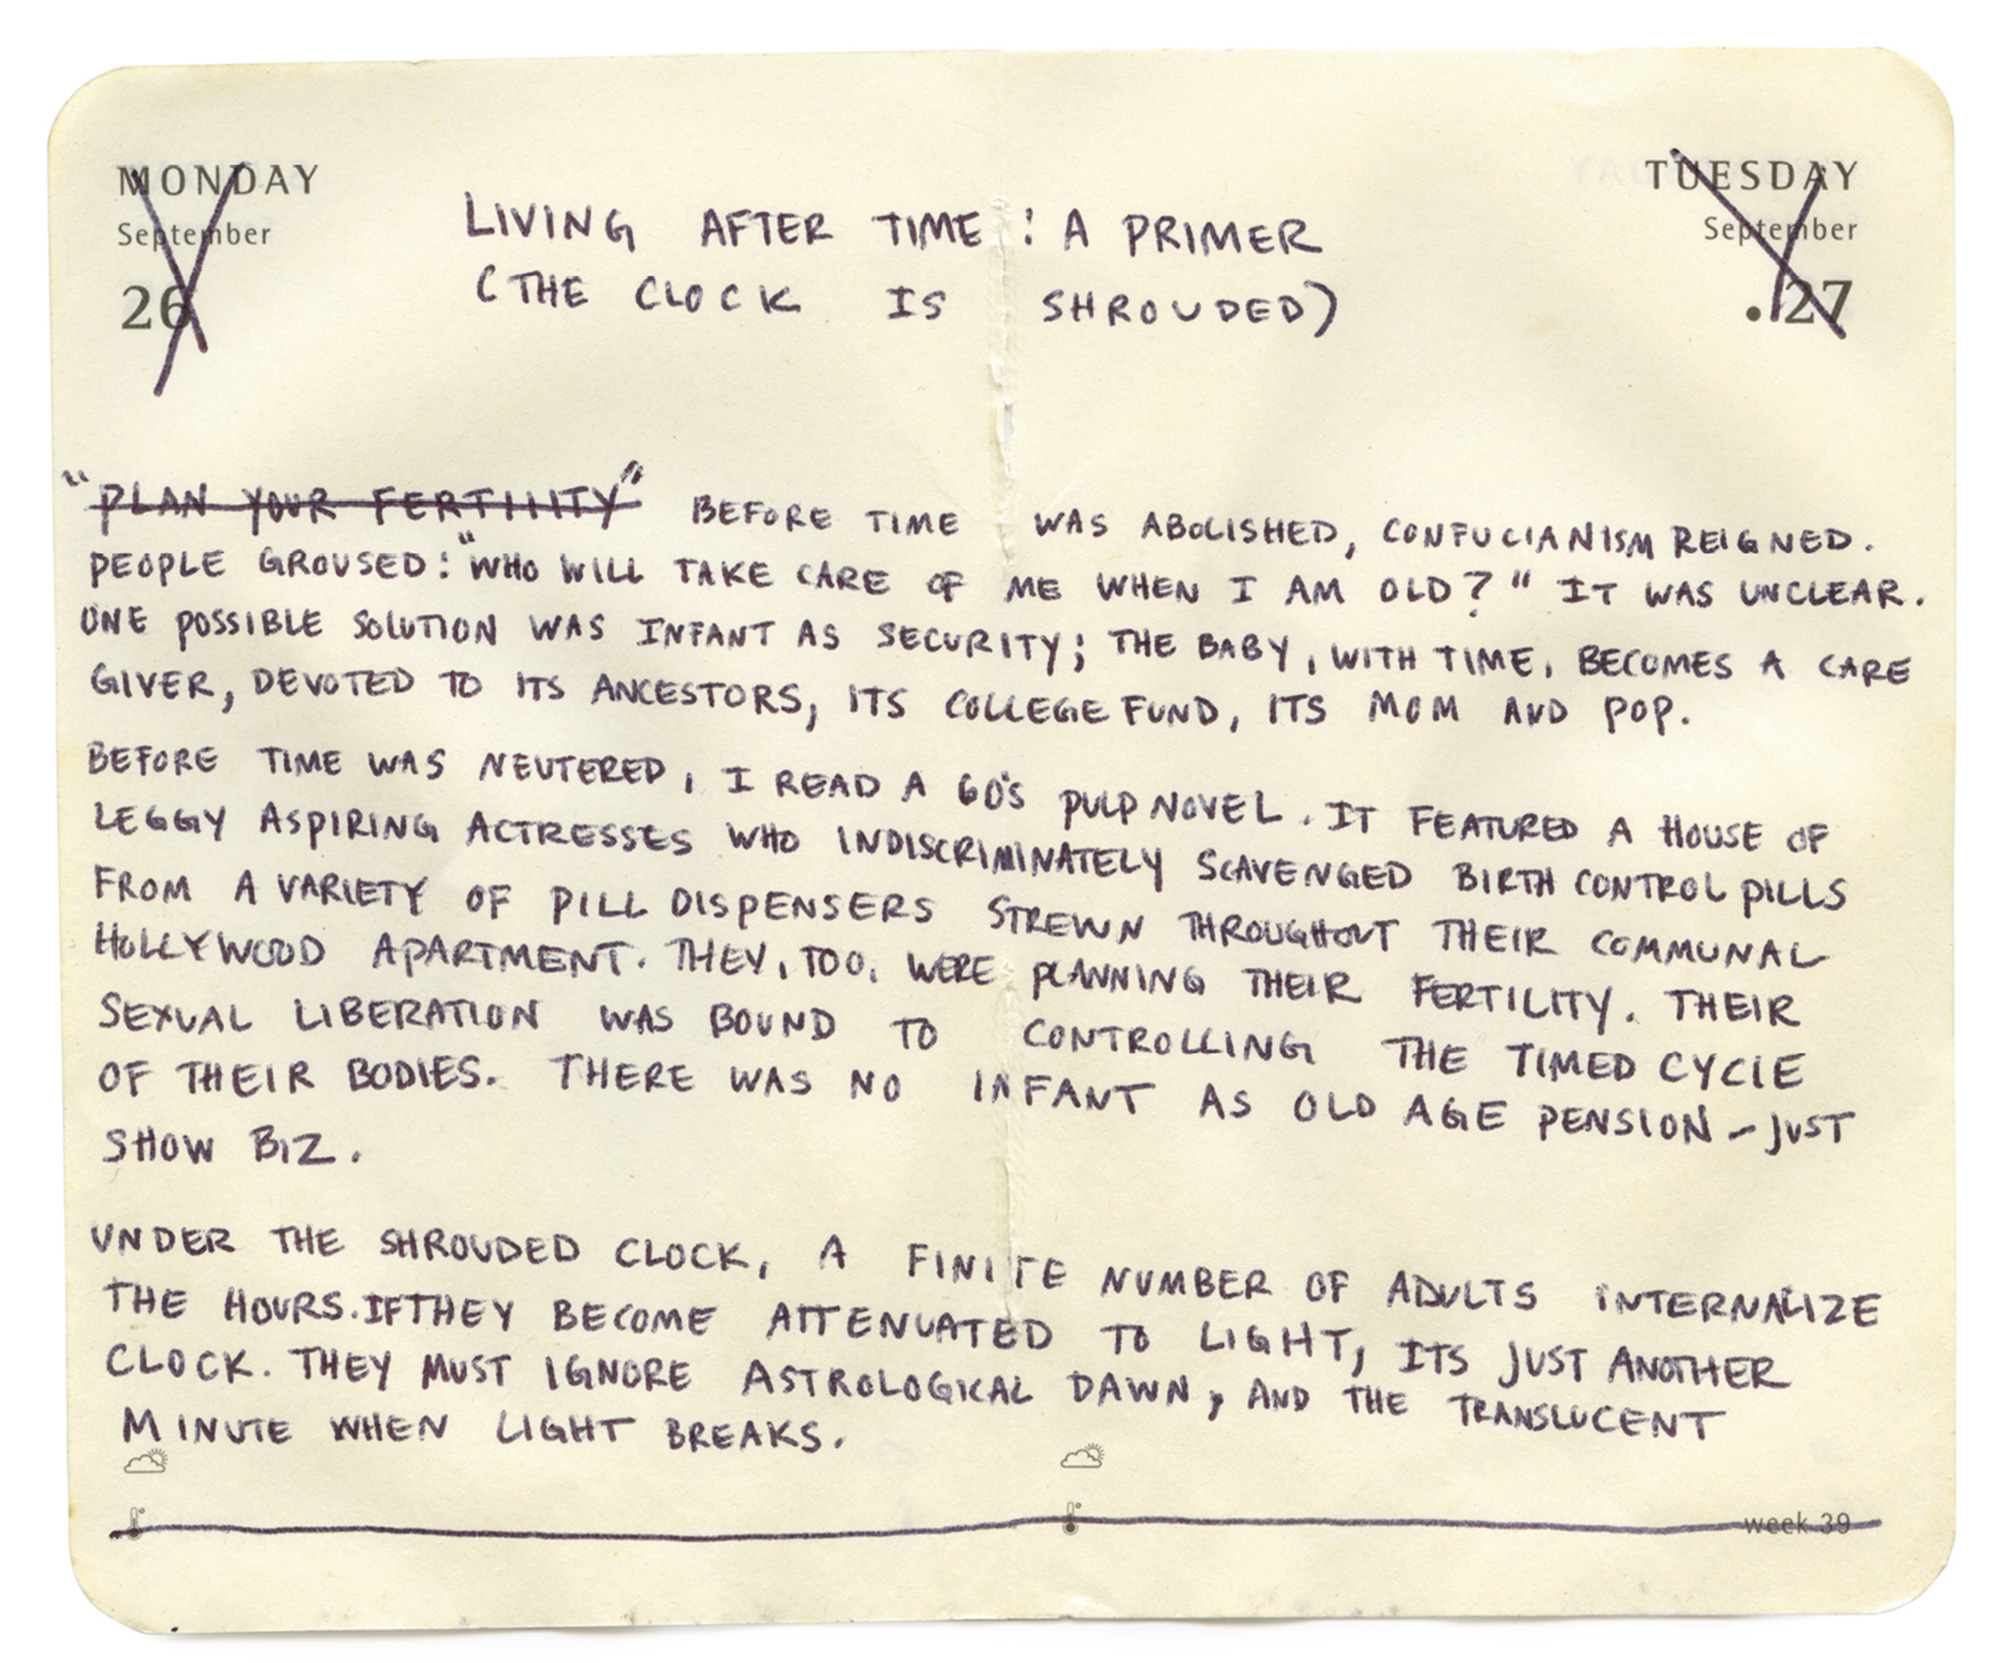 MONDAY
September
26
TUESDAY
September
.27
LIVING AFTER TIME: A PRIMER
(THE CLOCK IS SHROUDED)
"PLAN YOUR FERTILITY" BEFORE TIME WAS ABOLISHED, CONFUCIANISM REIGNED.
PEOPLE GROUSED: "WHO WILL TAKE CARE OF ME WHEN I AM OLD?" IT WAS UNCLEAR.
ONE POSSIBLE SOLUTION WAS INFANT AS SECURITY; THE BABY, WITH TIME, BECOMES A CARE
GIVER, DEVOTED TO ITS ANCESTORS, ITS COLLEGE FUND, ITS MOM AND POP.
BEFORE TIME WAS NEUTERED, I READ A 60'S PULP NOVEL. IT FEATURED A HOUSE OF
LEGGY ASPIRING ACTRESSES WHO INDISCRIMINATELY SCAVENGED BIRTH CONTROL PILLS
FROM A VARIETY OF PILL DISPENSERS STREWN THROUGHOUT THEIR COMMUNAL
HOLLYWOOD APARTMENT. THEY, TOO, WERE PLANNING THEIR FERTILITY. THEIR
SEXUAL LIBERATION WAS BOUND TO CONTROLLING THE TIMED CYCLE
OF THEIR BODIES. THERE WAS NO INFANT AS OLD AGE PENSION - JUST
SHOW BIZ.
UNDER THE SHROUDED CLOCK, A FINITE NUMBER OF ADULTS INTERNALIZE
THE HOURS. IF THEY BECOME ATTENUATED TO LIGHT, ITS JUST ANOTHER
CLOCK. THEY MUST IGNORE ASTROLOGICAL DAWN, AND THE TRANSLUCENT
MINUTE WHEN LIGHT BREAKS.
week 39